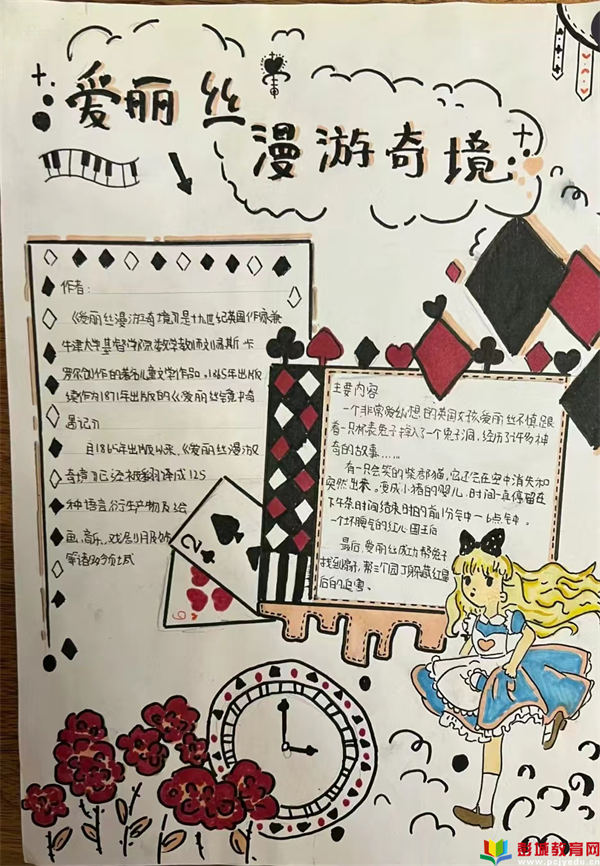 爱丽丝
漫游奇境
作者：
《爱丽丝漫游奇境》是十九世纪英国作家兼
牛津大学基督学院数学教师刘易斯 卡
罗尔创作的著名儿童文学作品。1865年出版
续作为1871年出版的《爱丽丝镜中奇
遇记》
自1865年出版以来，《爱丽丝漫游
奇境》已经被翻译成125
种语言衍生产物及绘
画、音乐、戏剧、服饰
等诸多领域
主要内容
一个非常爱幻想的英国女孩爱丽丝不慎跟
着一只怀表兔子掉入了一个兔子洞，经历了许多神
奇的故事……
有一只会笑的柴郡猫，它还会在空中消失和
突然出来。变成小猪的婴儿，时间一直停留在
下午茶时间结束时的前1分钟—6点钟。
一个坏脾气的红心国王后
最后，爱丽丝成功帮兔子
找到扇子，帮三个园丁躲藏红皇
后的追害。
2
6
彭城教育网
www.pcjyedu.cn